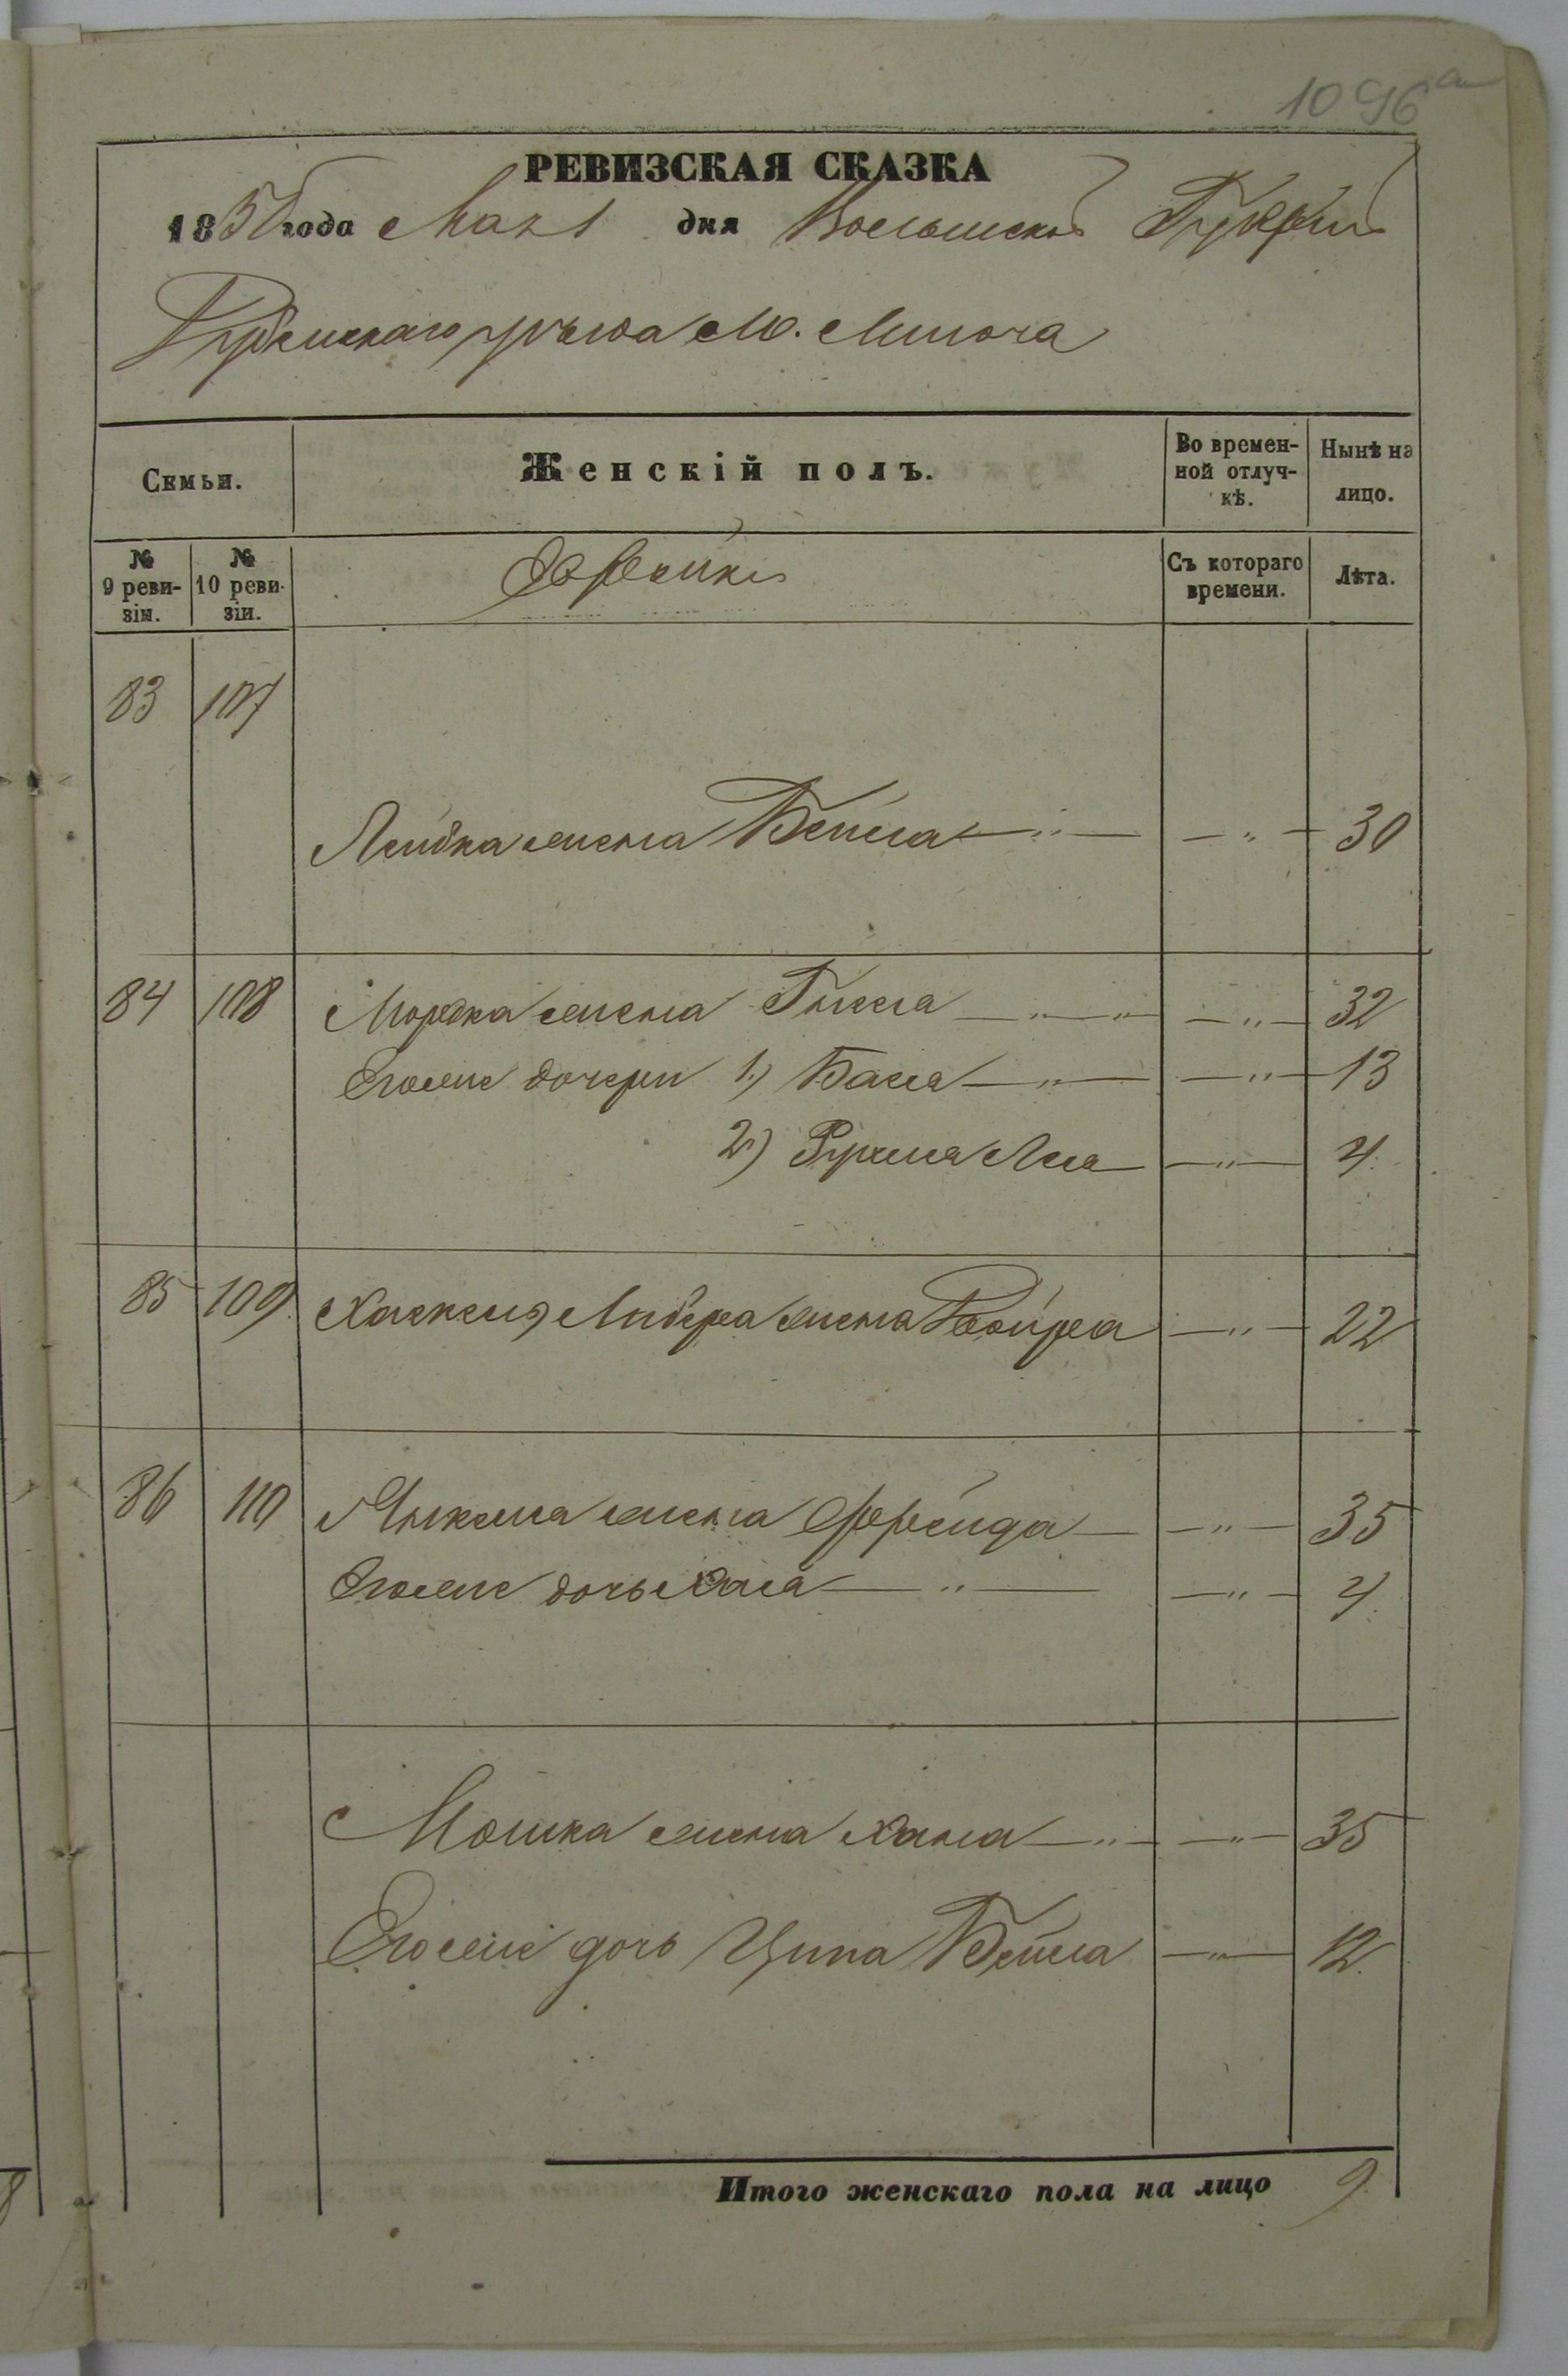 1096а
РЕВИЗСКАЯ СКАЗКА
1858 года Мая 1 дня Волынской Губерніи
Дубенскаго уѣзда М. Млинова
Семьи. Женскій полъ. Во временной отлучкѣ. Нынѣ на лицо.
№ 9 ревизіи. № 10 ревизіи. Еврейки Съ котораго времени. Лѣта.
83 107
Лейбка жена Бейла —„— —„— 30
84 108 Мортка жена Гитла —„—„— —„— 32
Его же дочери 1.) Бася —„— —„— 13
2) Фрума Лея —„— 4.
85 109 Хаскель Либера жена Двойра —„— 22
86 110 Янкеля жена Фрейда —„— 35
Его же дочь Хая —„— —„— 4.
Мошка жена Хана —„— —„— 35
Его же дочь Ципа Бейла —„— 12.
Итого женскаго пола на лицо 9